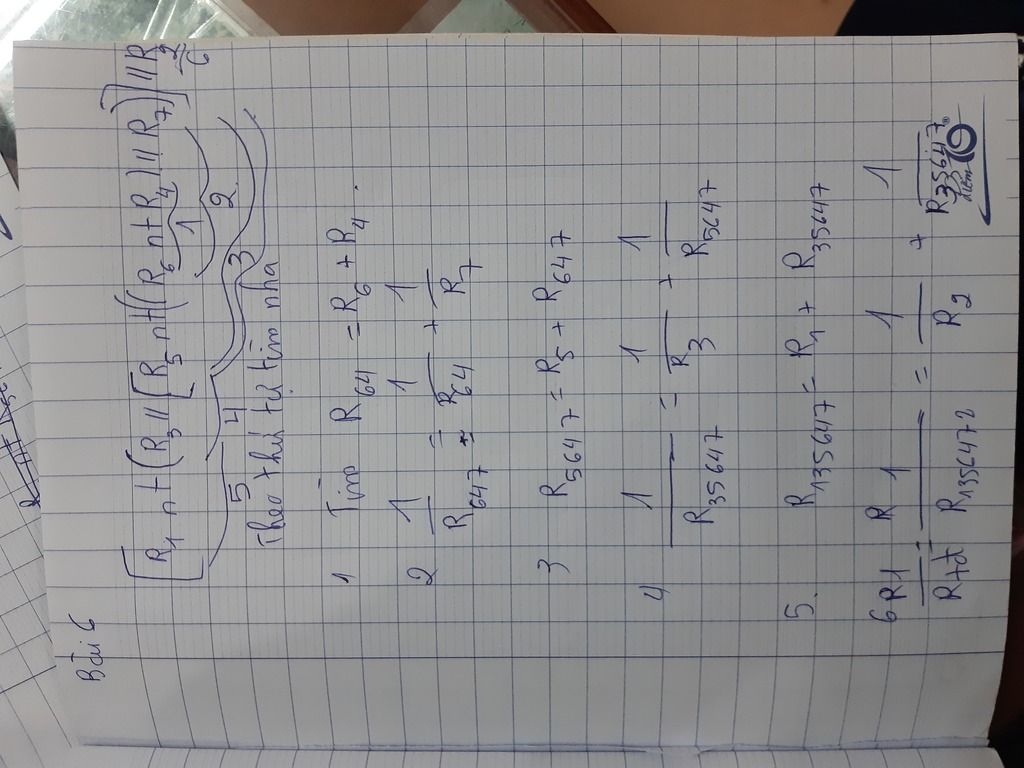 Bài 6
[R1 nt (R3 // [R5 nt ((R6 nt R4) // R7)])] // R2
1
2
3
4
5
6
Theo thứ tự tìm nha
1 Tìm R64 = R6 + R4.
2 1/R647 = 1/R64 + 1/R7
3 R5647 = R5 + R647
4 1/R35647 = 1/R3 + 1/R5647
5. R135647 = R1 + R35647
6 1/Rtđ = 1/R1356472 = 1/R2 + 1/R35647
10
điểm